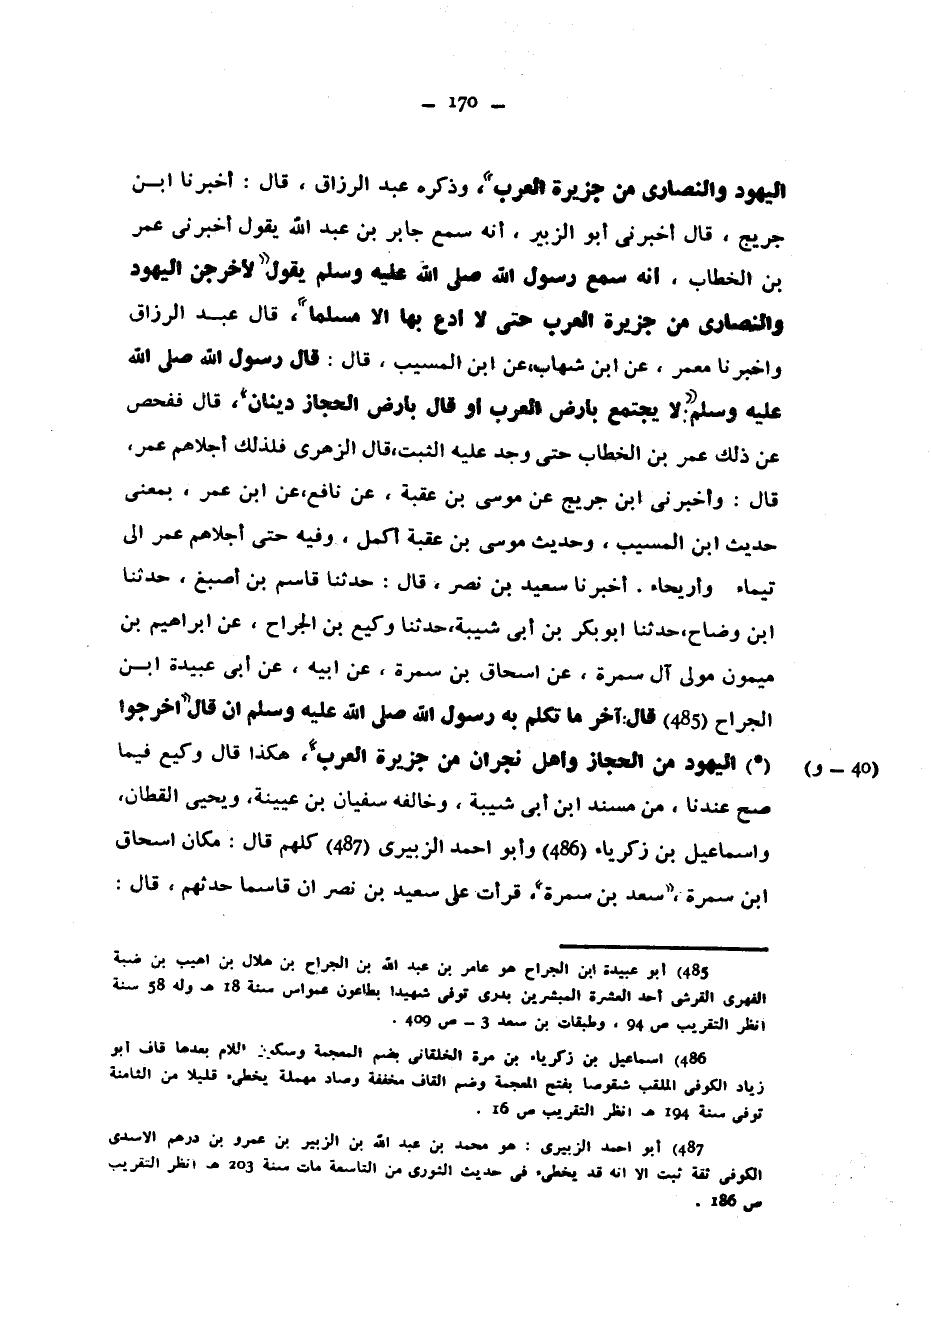 — 170 —
اليهود والنصارى من جزيرة العرب»، وذكره عبد الرزاق ، قال : أخبرنا ابـن
جريج ، قال أخبرنى أبو الزبير ، أنه سمع جابر بن عبد الله يقول أخبرنى عمر
بن الخطاب ، أنه سمع رسول الله صلى الله عليه وسلم يقول «لأخرجن اليهود
والنصارى من جزيرة العرب حتى لا ادع بها الا مسلما»، قال عبـد الرزاق
واخبرنا معمر ، عن ابن شهاب،عن ابن المسيب ، قال : قال رسول الله صلى الله
عليه وسلم:«لا يجتمع بارض العرب او قال بارض الحجاز دينان»، قال ففحص
عن ذلك عمر بن الخطاب حتى وجد عليه الثبت،قال الزهرى فلذلك أجلاهم عمر،
قال : وأخبرنى ابن جريج عن موسى بن عقبة ، عن نافع،عن ابن عمر ، بمعنى
حديث ابن المسيب ، وحديث موسى بن عقبة أكمل ، وفيه حتى أجلاهم عمر الى
تيماء وأريحاء . أخبرنا سعيد بن نصر ، قال : حدثنا قاسم بن أصبغ ، حدثنا
ابن وضاح،حدثنا ابوبكر بن أبى شيبة،حدثنا وكيع بن الجراح ، عن ابراهيم بن
ميمون مولى آل سمرة ، عن اسحاق بن سمرة ، عن ابيه ، عن أبى عبيدة ابـن
الجراح (485) قال:آخر ما تكلم به رسول الله صلى الله عليه وسلم ان قال«اخرجوا
(*) اليهود من الحجاز واهل نجران من جزيرة العرب»، هكذا قال وكيع فيما (40 – و)
صح عندنا ، من مسند ابن أبى شيبة ، وخالفه سفيان بن عيينة، ويحيى القطان،
واسماعيل بن زكرياء (486) وأبو احمد الزبيرى (487) كلهم قال : مكان اسحاق
ابن سمرة ،«سعد بن سمرة»، قرأت على سعيد بن نصر ان قاسما حدثهم ، قال :
485) أبو عبيدة ابن الجراح هو عامر بن عبد الله بن الجراح بن هلال بن اهيب بن ضبة
الفهرى القرشى أحد العشرة المبشرين بدرى توفى شهيدا بطاعون عمواس سنة 18 هـ وله 58 سنة
انظر التقريب ص 94 ، وطبقات بن سعد 3 – ص 409 .
486) اسماعيل بن زكرياء بن مرة الخلقانى بضم المعجمة وسكون اللام بعدها قاف أبو
زياد الكوفى الملقب شقوصا بفتح المعجمة وضم القاف مخففة وصاد مهملة يخطىء قليلا من الثامنة
توفى سنة 194 هـ انظر التقريب ص 16 .
487) أبو احمد الزبيرى : هو محمد بن عبد الله بن الزبير بن عمرو بن درهم الاسدى
الكوفى ثقة ثبت الا انه قد يخطىء فى حديث الثورى من التاسعة مات سنة 203 هـ انظر التقريب
ص 186 .